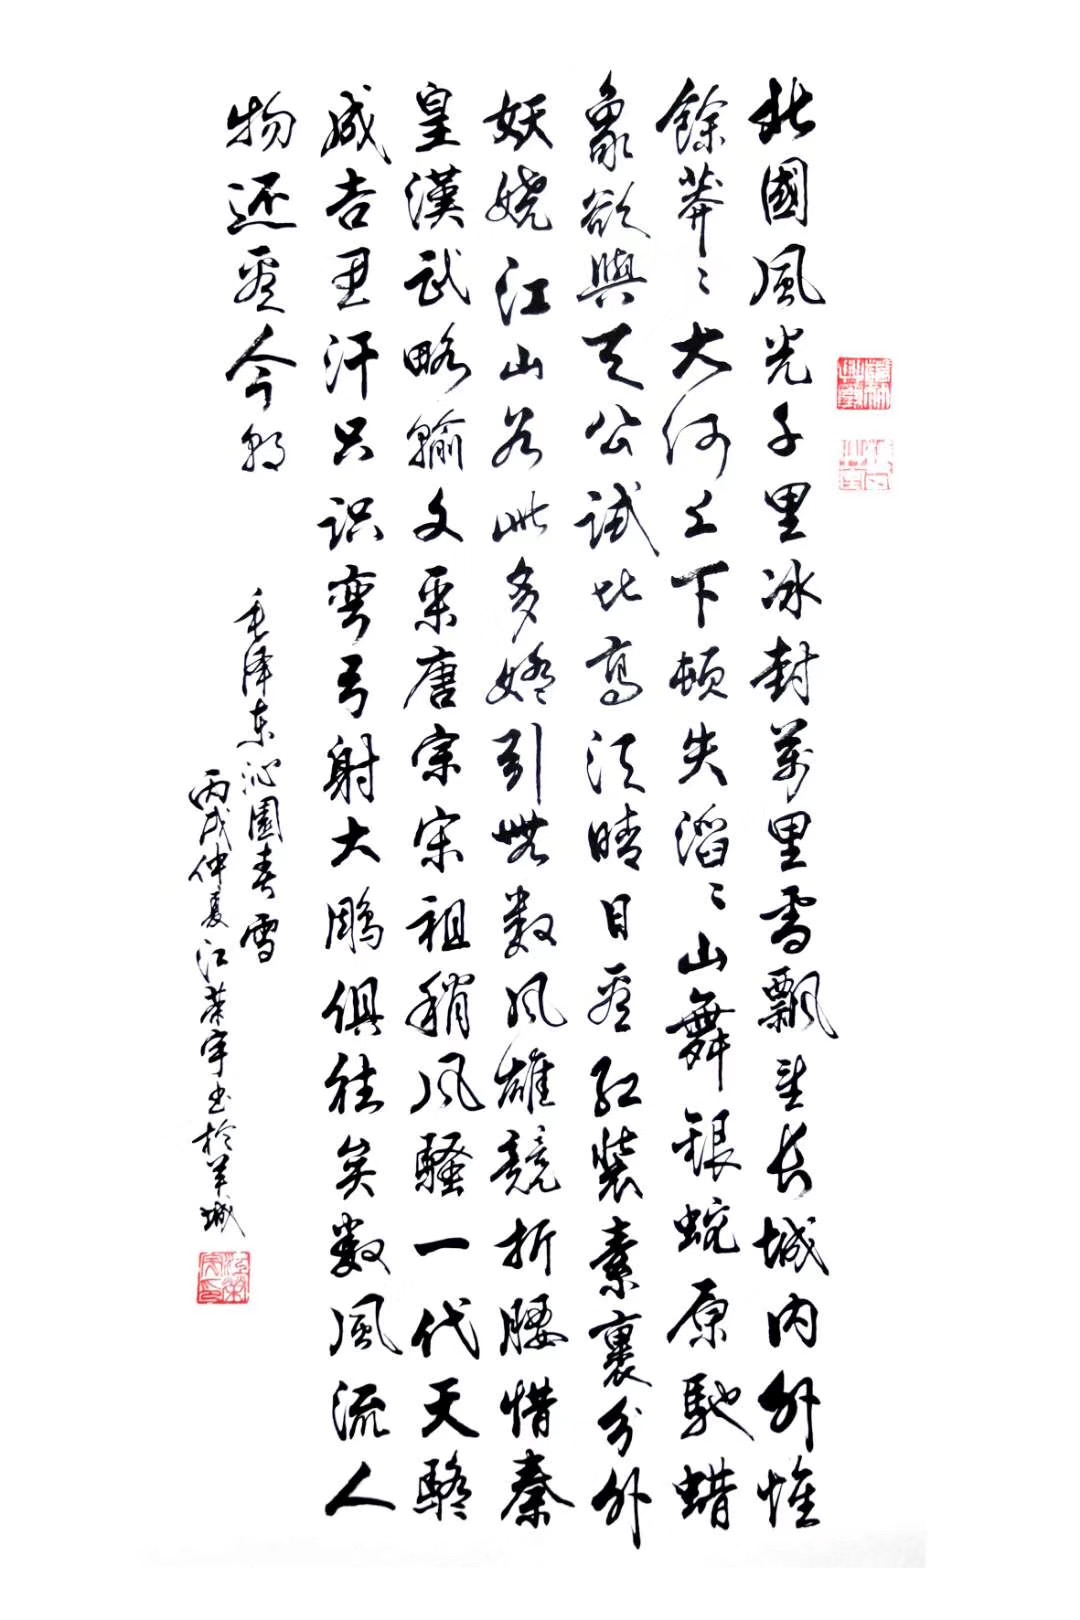 北國風光千里冰封萬里雪飄望長城内外惟
餘莽〻大河上下頓失滔〻山舞銀蛇原馳蜡
象欲與天公試比高须晴日看红装素裹分外
妖娆江山如此多娇引無数风雄競折腰惜秦
皇漢武略輸文采唐宗宋祖稍风騷一代天驕
成吉思汗只识弯弓射大鵰俱往矣数風流人
物还看今朝
毛泽东沁園春雪
丙戌仲夏江荣宇书於羊城